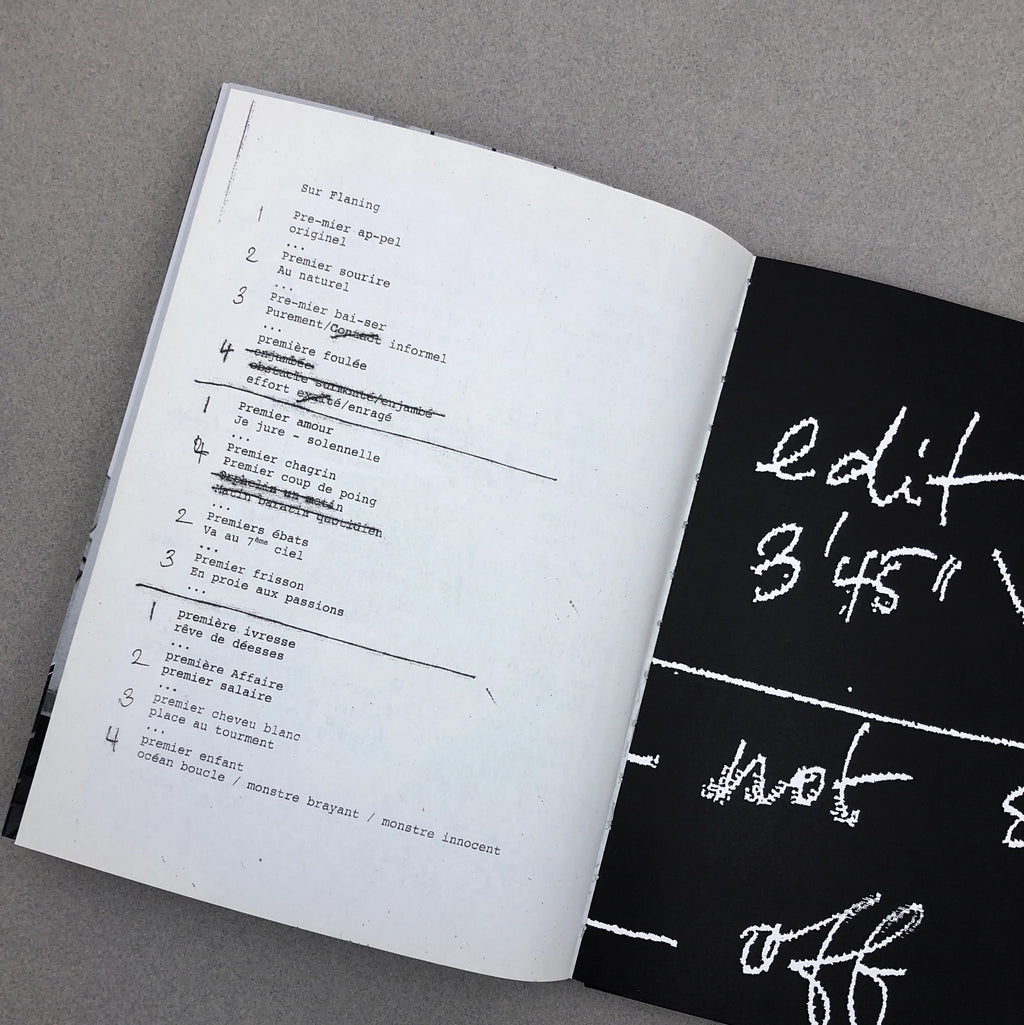 Sur Flaning
1 Pre-mier ap-pel
originel
...
2 Premier sourire
Au naturel
...
3 Pre-mier bai-ser
Purement/Connact informel
...
4 première foulée
enjambée
obstacle surmonté/enjambé
effort excité/enragé
1 Premier amour
Je jure - solennelle
...
4 Premier chagrin
Premier coup de poing
Orphelin un matin
Matin baratin quotidien
...
2 Premiers ébats
Va au 7ème ciel
...
3 Premier frisson
En proie aux passions
...
1 première ivresse
rêve de déesses
...
2 première Affaire
premier salaire
...
3 premier cheveu blanc
place au tourment
...
4 premier enfant
océan boucle / monstre brayant / monstre innocent
edit
3'45"
not
off